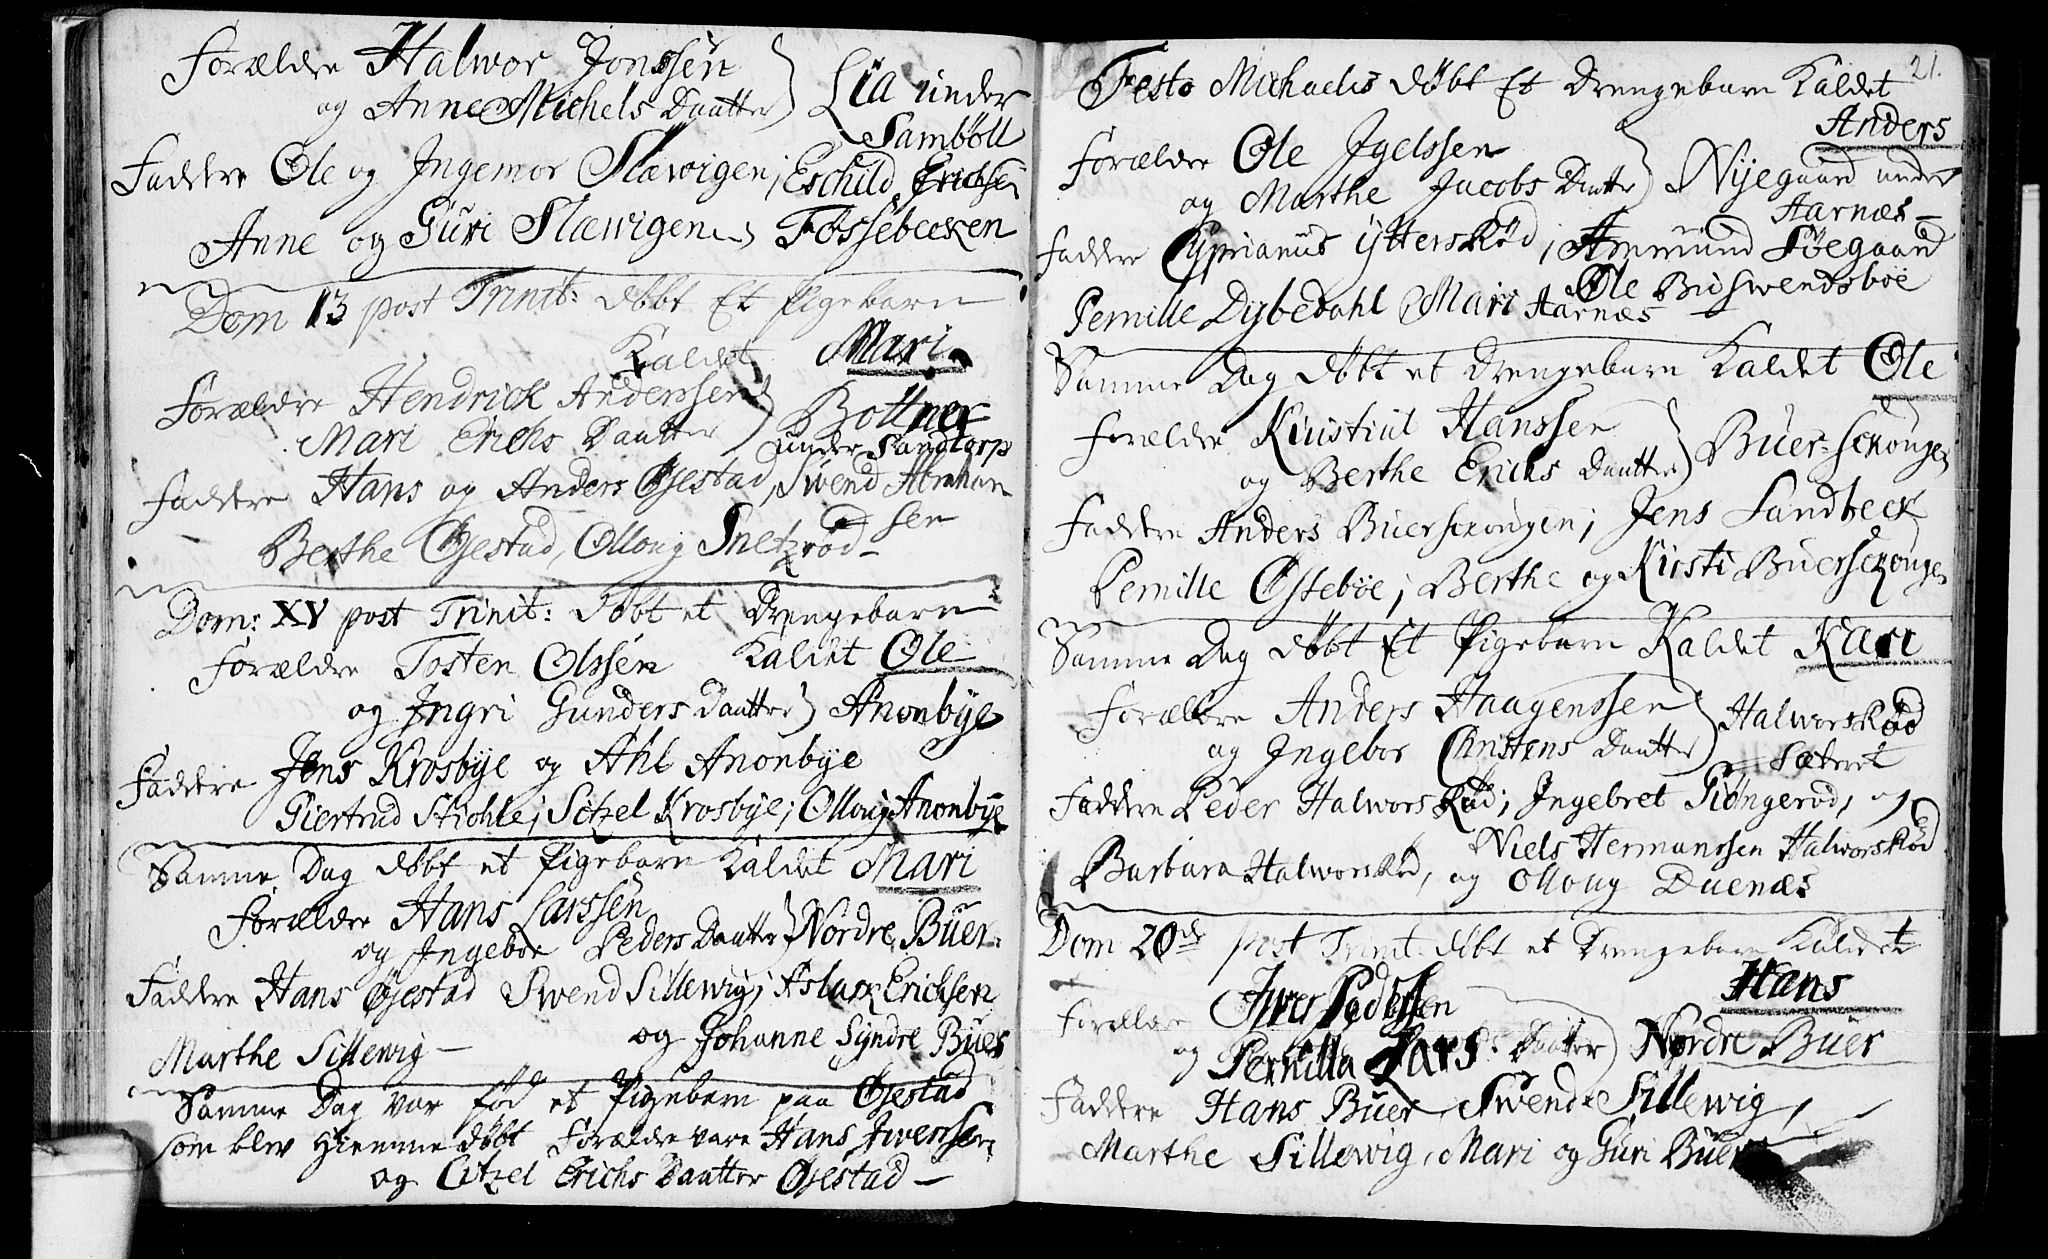 Forældre Halwor Jonssen
og Anne Michels Daatter } Lia under
Sambøll
Faddere Ole og Ingemor Slewigen; Eschild Erichsen
Anne og Guri Slewigen, Fossebecken
Dom 13 post Trinit: døbt Et Pigebarn
Kaldet Mari
Forældre Hendrick Anderssen
Mari Erichs Daatter } Bottner
under Sandtorp
Faddere Hans og Anders Øjestad, Swend Abraham
sen
Berthe Øjestad, Olloug Snetzrød
Dom: XV post Trinit: døbt et Drengebarn
Kaldet Ole
Forældre Tosten Olssen
og Ingri Gunders Daatter } Anonbÿe
Faddere Jens Krosbÿe og Ahl Anonbÿe
Giertrud Stichle; Sitzel Krosbÿe; Olloug Anonbÿe
Samme Dag døbt et Pigebarn Kaldet Mari
Forældre Hans Larssen
og Ingebor Peders Daatter } Nordre Buer
Faddere Hans Øjestad Swend Sillewig; Aslack Erichsen
Marthe Sillewig – og Johanne Syndre Buer
Samme Dag var fød et Pigebarn paa Øjestad
som blev Hiemme døbt Forældre vare Hans Iwerssen
og Citzel Erichs Daatter Øjestad –
21.
Festo Michaelis døbt Et Drengebarn Kaldet
Anders
Forældre Ole Igelssen
og Marthe Jacobs Daatter } Nÿegaard under
Aarnæs –
Faddere Cyprianus Ytterskød, Ammund Søegaard
Ole Buswendsbøe
Pernille Dybedahl Mari Aarnæs –
Samme Dag døbt et Drengebarn Kaldet Ole
Forældre Hanssen
og Berthe Erichs Daatter } Buer-Schougen
Faddere Anders Buerschougen; Jens Sandbeck
Pernille Østebøe; Berthe og Kirsti Buerschougen
Samme Dag døbt Et Pigebarn Kaldet Kari
Forældre Anders Haagenssen
og Ingebor Christens Daatter } Halworsrød
Sæteret
Faddere Peder Halworsrød; Ingebret Giøngerød, og
Niels Hermanssen Halworsrød
Barbara Halworsrød, og Olloug Duenæs
Dom 20de post Trinit: døbt et Drengebarn Kaldet
Hans
Forældre Iwer Pederssen
og Pernilla Lars Daatter } Nørdre Buer
Faddere Hans Buer, Swend Sillewig,
Marthe Sillewig, Mari og Guri Buer